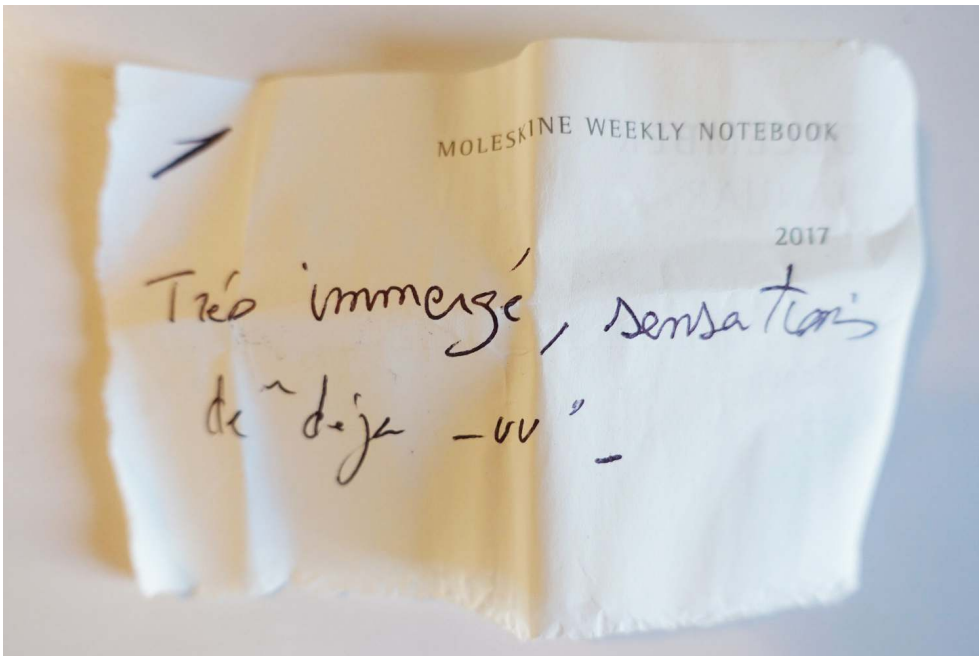 MOLESKINE WEEKLY NOTEBOOK
2017
Très immergé, sensations
de "déja-vu"_